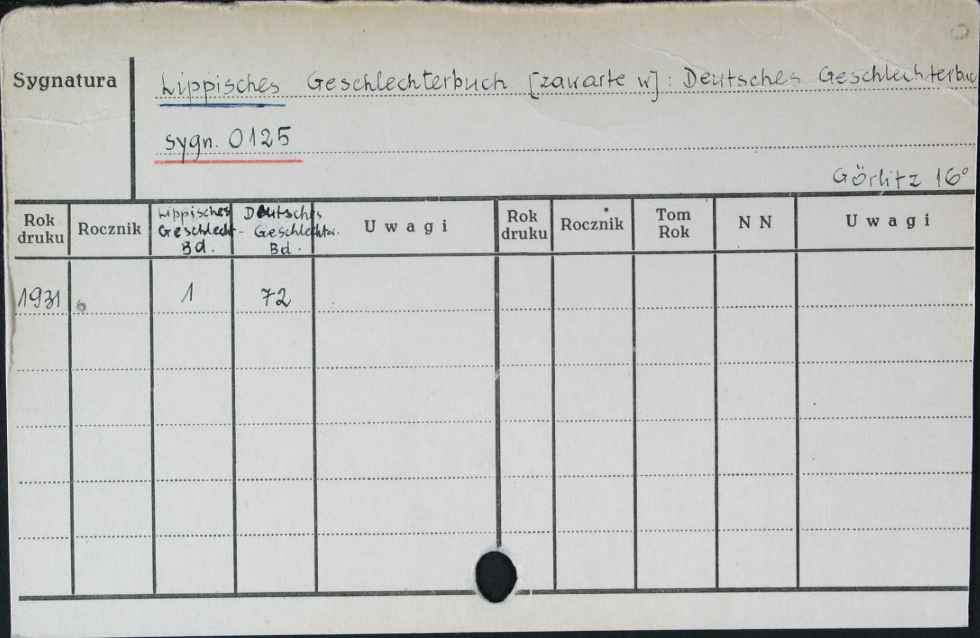 Sygnatura
Lippisches Geschlechterbuch [zawarte w]: Deutsches Geschlechterbuc
sygn. 0125
Görlitz 16°
Rok druku Rocznik Lippisches Geschlecht- Bd. Deutsches Geschlechter. Bd. Uwagi Rok druku Rocznik Tom Rok NN Uwagi
1931 1 72